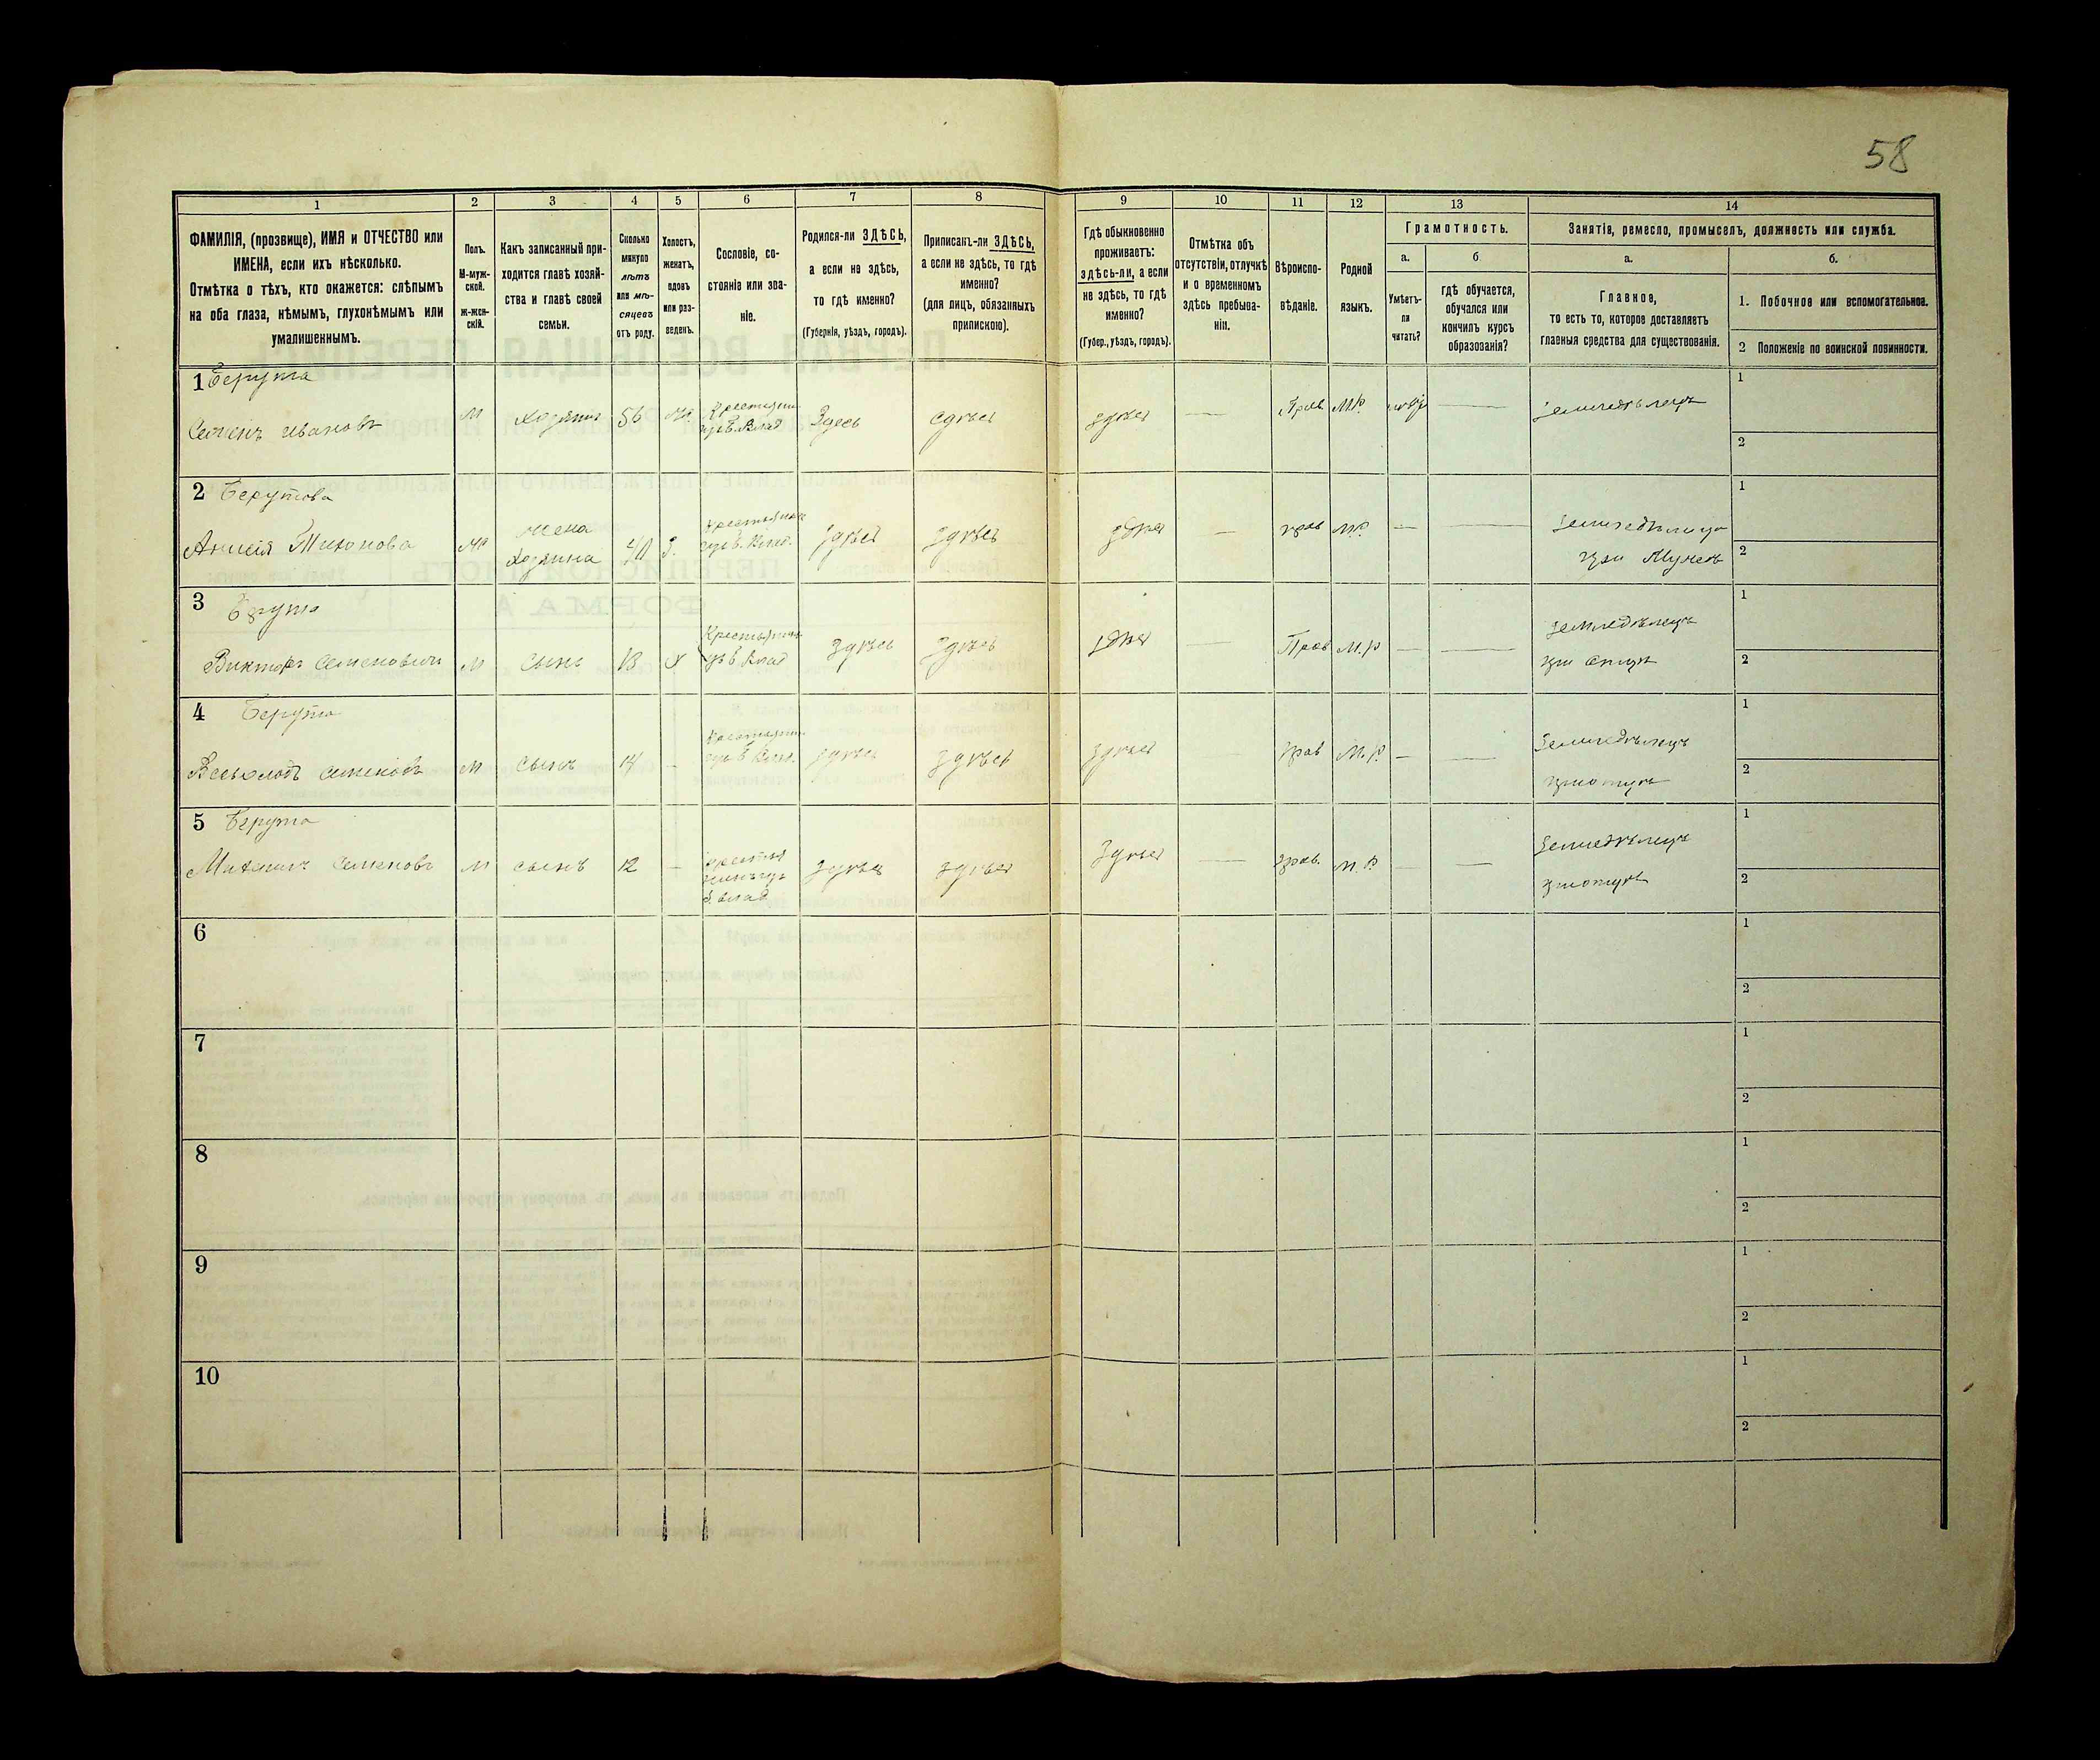 58
1 2 3 4 5 6 7 8 9 10 11 12 13 14
ФАМИЛІЯ, (прозвище), ИМЯ и ОТЧЕСТВО или
ИМЕНА, если ихъ нѣсколько.
Отмѣтка о тѣхъ, кто окажется: слѣпымъ
на оба глаза, нѣмымъ, глухонѣмымъ или
умалишеннымъ.
Полъ.
М-муж-
ской.
Ж-жен-
скій.
Какъ записанный при-
ходится главѣ хозяй-
ства и главѣ своей
семьи.
Сколько
минуло
лѣтъ
или мѣ-
сяцевъ
отъ роду.
Холостъ,
женатъ,
вдовъ
или раз-
веденъ.
Сословіе, со-
стояніе или зва-
ніе.
Родился-ли ЗДѢСЬ,
а если не здѣсь,
то гдѣ именно?
(Губернія, уѣздъ, городъ).
Приписанъ-ли ЗДѢСЬ,
а если не здѣсь, то гдѣ
именно?
(для лицъ, обязанныхъ
припискою).
Гдѣ обыкновенно
проживаетъ:
здѣсь-ли, а если
не здѣсь, то гдѣ
именно?
(Губер., уѣздъ, городъ).
Отмѣтка объ
отсутствіи, отлучкѣ
и о временномъ
здѣсь пребыва-
ніи.
Вѣроиспо-
вѣданіе.
Родной
языкъ.
Грамотность.
а.
Умѣетъ-
ли
читать?
б
гдѣ обучается,
обучался или
кончилъ курсъ
образованія?
Занятія, ремесло, промыселъ, должность или служба.
а.
Главное,
то есть то, которое доставляетъ
главныя средства для существованія.
б.
1. Побочное или вспомогательное.
2 Положеніе по воинской повинности.
1 Берута
Семенъ Ивановъ
М
хозяинъ
56
Здесь
здѣсь
здѣсь
—
Прав.
М.Р.
—
земледѣлецъ
1
2
2 Берутова
Анисія Тихонова
жена
хозяина
40
здѣсь
здѣсь
здѣсь
—
прав
М.Р.
—
—
при Мужѣ
1
2
3 Берута
Викторъ Семеновичъ
М
сынъ
18
Х
здѣсь
здѣсь
здѣсь
—
Прав
М.р
—
—
земледѣлецъ
при отцѣ
1
2
4 Берута
Всеволодъ Семеновъ
М
сынъ
14
—
здѣсь
здѣсь
здѣсь
—
прав
М.р.
—
—
земледѣлецъ
при отцѣ
1
2
5 Берута
Михаилъ Семеновъ
М
сынъ
12
—
здѣсь
здѣсь
здѣсь
—
прав.
М.Р
—
—
земледѣлецъ
при отцѣ
1
2
6
1
2
7
1
2
8
1
2
9
1
2
10
1
2